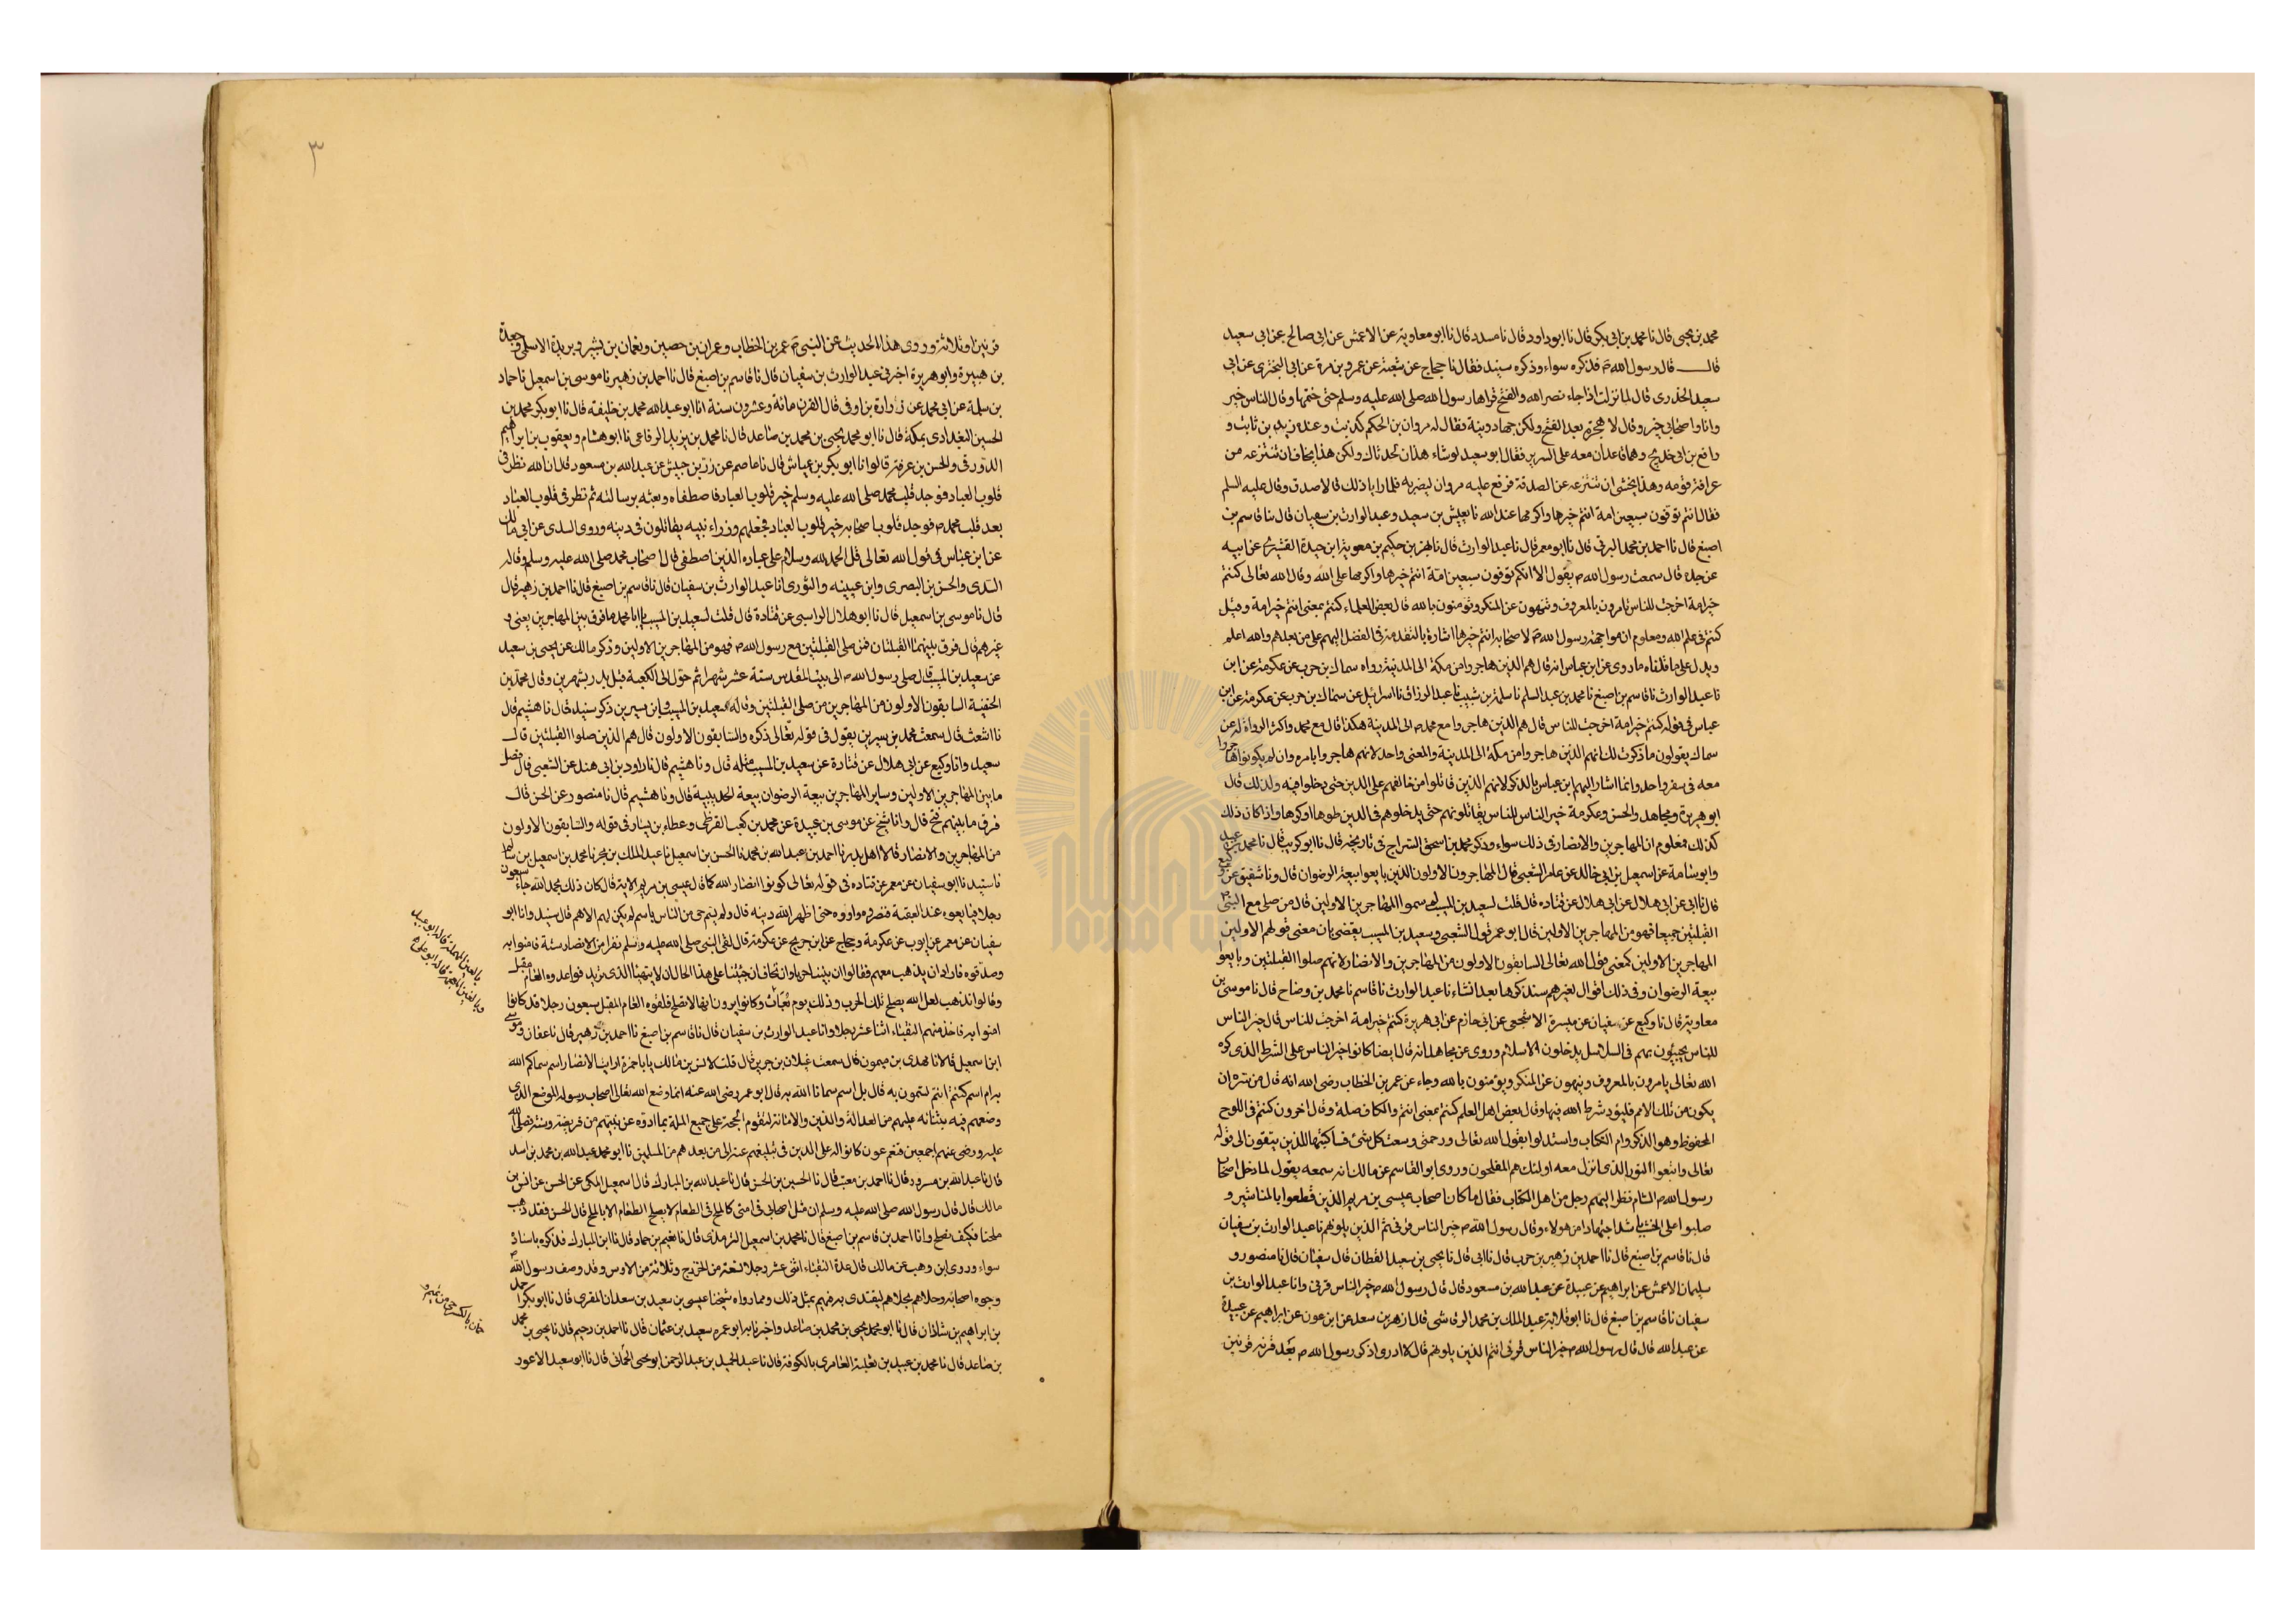 محمد بن يحيى قال نا محمد بن ابى بكر قال نا ابو داود قال نا مسدد قال نا ابو معاوية عن الاعمش عن ابى صالح عن ابى سعيد
قال قال رسول الله ص فذكره سواء وذكره سنيد فقال نا حجاج عن شعبة عن عمرو بن مرة عن ابى البخترى عن ابى
سعيد الخدرى قال لما نزلت اذا جاء نصر الله والفتح قراها رسول الله صلى الله عليه وسلم حتى ختمها وقال الناس خير
وانا واصحابى خير وقال لا هجرة بعد الفتح ولكن جهاد ونية فقال له مروان بن الحكم كذبت وعنده زيد بن ثابت و
رافع بن ابى خديج وهما قاعدان معه على السرير فقال ابو سعيد لو شاء هذان لحدثاك ولكن هذا يخاف ان تنزعه من
عرافة قومه وهذا يخشى ان تنزعه عن الصدقة فرفع عليه مروان ليضربه فلما رايا ذلك قالا صدق وقال عليه السلم
فقال انتم توفون سبعين امة انتم خيرها واكرمها عند الله نا يعيش بن سعيد وعبد الوارث بن سفيان قال نا قاسم بن
اصبغ قال نا احمد بن محمد البرتى قال نا ابو معمر قال نا عبد الوارث قال نا بهز بن حكيم بن معوية ابن حيدة القشيرى عن ابيه
عن جده قال سمعت رسول الله ص يقول الا انكم توفون سبعين امة انتم خيرها واكرمها على الله وقال الله تعالى كنتم
خير امة اخرجت للناس تامرون بالمعروف وتنهون عن المنكر وتؤمنون بالله قال بعض العلماء كنتم بمعنى انتم خير امة وقيل
كنتم فى علم الله ومعلوم ان مواجهة رسول الله ص لاصحابه انتم خيرها اشارة بالتقدمة فى الفضل اليهم على من بعدهم والله اعلم
ويدل على ما قلناه ما روى عن ابن عباس انه قال هم الذين هاجروا من مكة الى المدينة رواه سماك بن حرب عن عكرمة عن ابن
نا عبد الوارث نا قاسم بن اصبغ نا محمد بن عبد السلم نا سلمة بن شبيب نا عبد الرزاق نا اسرائيل عن سماك بن حرب عن عكرمة عن ابن
عباس فى قوله كنتم خير امة اخرجت للناس قال هم الذين هاجروا مع محمد ص الى المدينة هكذا قال مع محمد واكثر الرواة له عن
سماك يقولون ما ذكرت لك انهم الذين هاجروا من مكة الى المدينة والمعنى واحد لانهم هاجروا بامره وان لم يكونوا هاجروا
معه فى سفر واحد وانما اشار اليهم ابن عباس بالذكر لانهم الذين قاتلوا من خالفهم على الدين حتى دخلوا فيه ولذلك قال
ابو هريرة ومجاهد والحسن وعكرمة خير الناس للناس يقاتلونهم حتى يدخلوهم فى الدين طوعا او كرها واذا كان ذلك
كذلك فمعلوم ان المهاجرين والانصار فى ذلك سواء وذكر محمد بن اسحق السراج فى تاريخه قال نا ابو كريب قال نا محمد بن عبيد
وابو اسامة عن اسمعيل بن ابى خالد عن عامر الشعبى قال المهاجرون الاولون الذين بايعوا بيعة الرضوان قال ونا شقيق عن وكيع
قال نا ابى عن ابى هلال عن ابى هلال عن قتاده قال قلت لسعيد بن المسيب لم سموا المهاجرين الاولين قال من صلى مع النبى ص
القبلتين جميعا فهو من المهاجرين الاولين قال ابو عمر قول الشعبى وسعيد بن المسيب يقضى بان معنى قولهم الاولين
المهاجرين الاولين كمعنى قول الله تعالى السابقون الاولون من المهاجرين والانصار لانهم صلوا القبلتين وبايعوا
بيعة الرضوان وفى ذلك اقوال لغيرهم سنذكرها بعد انشاء نا عبد الوارث نا قاسم نا محمد بن وضاح قال نا موسى بن
معاوية قال نا وكيع عن سفيان عن ميسرة الاشجعى عن ابى حازم عن ابى هريرة كنتم خير امة اخرجت للناس قال خير الناس
للناس يجيئون بهم فى السلاسل يدخلون الاسلام وروى عن مجاهد انه قال ايضا كانوا خير الناس على الشرط الذى ذكره
الله تعالى يامرون بالمعروف وينهون عن المنكر ويؤمنون بالله وجاء عن عمر بن الخطاب رضى الله انه قال من سره ان
يكون من تلك الامم فليؤد شرط الله فيها وقال بعض اهل العلم كنتم بمعنى انتم والكاف صلة وقال اخرون كنتم فى اللوح
المحفوظ وهو الذكر وام الكتاب واستدلوا بقول الله تعالى ورحمتى وسعت كل شئ فساكتبها للذين يتقون الى قوله
تعالى واتبعوا النور الذى انزل معه اولئك هم المفلحون وروى ابو القاسم عن مالك انه سمعه يقول لما دخل اصحاب
رسول الله ص الشام نظر اليهم رجل من اهل الكتاب فقال ما كان اصحاب عيسى بن مريم الذين قطعوا بالمناشير و
صلبوا على الخشب باشد اجتهادا من هولاء وقال رسول الله ص خير الناس قرنى ثم الذين يلونهم نا عبد الوارث بن سفيان
قال نا قاسم بن اصبغ قال نا احمد بن زهير بن حرب قال نا ابى قال نا يحيى بن سعيد القطان قال سفيان قال نا منصور و
سليمان الاعمش عن ابراهيم عن عبيدة عن عبد الله بن مسعود قال قال رسول الله ص خير الناس قرنى وانا عبد الوارث بن
سفيان نا قاسم بن اصبغ قال نا ابو قلابة عبد الملك بن محمد الرقاشى قال ازهر بن سعد عن ابن عون عن ابراهيم عن عبيدة
عن عبد الله قال قال رسول الله ص خير الناس قرنى انتم الذين يلونهم قال لا ادرى اذكر رسول الله ص بعد قرنه قرنين
٣
قرنين او ثلاثة وروى هذا الحديث عن النبى ص عمر بن الخطاب وعمران بن حصين ونعمان بن بشير وبريدة الاسلمى وجعدة
بن هبيرة وابو هريرة اخبرنى عبد الوارث بن سفيان قال نا قاسم بن اصبغ قال نا احمد بن زهير نا موسى بن اسمعيل نا حماد
بن سلمة عن ابى محمد عن زرارة بن اوفى قال القرن مائة وعشرون سنة انا ابو عبد الله محمد بن خليفة قال نا ابو بكر محمد بن
الحسين البغدادى بمكة قال نا ابو محمد يحيى بن محمد بن صاعد قال نا محمد بن يزيد الرفاعى نا ابو هشام ويعقوب بن ابراهيم
الدورقى والحسن بن عرفة قالوا نا ابو بكر بن عياش قال نا عاصم عن زر بن حبيش عن عبد الله بن مسعود قال ان الله نظر فى
قلوب العباد فوجد قلب محمد صلى الله عليه وسلم خير قلوب العباد فاصطفاه وبعثه برسالته ثم نظر فى قلوب العباد
بعد قلب محمد ص فوجد قلوب اصحابه خير قلوب العباد فجعلهم وزراء نبيه يقاتلون فى دينه وروى السدى عن ابى مالك
عن ابن عباس فى قول الله تعالى قل الحمد لله وسلام على عباده الذين اصطفى قال اصحاب محمد صلى الله عليه وسلم وقاله
السدى والحسن بن البصرى وابن عيينه والثورى انا عبد الوارث بن سفيان قال نا قاسم بن اصبغ قال نا احمد بن زهير قال
قال نا موسى بن اسمعيل قال نا ابو هلال الراسبى عن قتادة قال قلت لسعيد بن المسيب يا ابا محمد ما فرق بين المهاجرين يعنى و
غيرهم قال فرق بينهما القبلتان فمن صلى القبلتين مع رسول الله ص فهو من المهاجرين الاولين وذكر مالك عن يحيى بن سعيد
عن سعيد بن المسيب قال صلى رسول الله ص الى بيت المقدس ستة عشر شهرا ثم حول الى الكعبة قبل بدر بشهرين وقال محمد بن
الحنفية السابقون الاولون من المهاجرين من صلى القبلتين وقاله سعيد بن المسيب وابن سيرين ذكر سنيد قال نا هشيم قال
نا اشعث قال سمعت محمد بن سيرين يقول فى قوله تعالى ذكره والسابقون الاولون قال هم الذين صلوا القبلتين قال
سعيد وانا وكيع عن ابى هلال عن قتادة عن سعيد بن المسيب مثله قال ونا هشيم قال نا داود بن ابى هند عن الشعبى قال فصل
ما بين المهاجرين الاولين وساير المهاجرين بيعة الرضوان بيعة الحديبية قال ونا هشيم قال نا منصور عن الحسن قال
فرق ما بينهم فتح قال وانا شيخ عن موسى بن عبيدة عن محمد بن كعب القرظى وعطاء بن يسار فى قوله والسابقون الاولون
من المهاجرين والانصار قالا اهل بدر نا احمد بن عبد الله بن محمد نا الحسن بن اسمعيل نا عبد الملك بن بحر نا محمد بن اسمعيل بن سالم
نا سنيد نا ابو سفيان عن معمر عن قتاده فى قوله تعالى كونوا انصار الله كما قال عيسى بن مريم الاية قال كان ذلك بحمد الله جاء سبعون
رجلا فبايعوه عند العقبة فنصروه واووه حتى اظهر الله دينه قال ولم يتم حى من الناس باسم لم يكن لهم الا هم قال سنيد وانا ابو
سفيان عن معمر عن ايوب عن عكرمة وحجاج عن ابن جريج عن عكرمة قال لقى النبى صلى الله عليه وسلم نفرا من الانصار ستة فامنوا به
وصدقوه فاراد ان يذهب معهم فقالوا ان بيننا حربا وان نخاف ان جئتنا على هذا الحال ان لا يتهيا الذى تريد فواعدوه العام مقبل
وقالوا نذهب لعل الله يصلح تلك الحرب وذلك يوم بعاث وكانوا يرون انها لا تصلح فلقوه العام المقبل سبعون رجلا قد كانوا
امنوا به فاخذ منهم النقباء اثنا عشر رجلا وانا عبد الوارث بن سفيان قال نا قاسم بن اصبغ نا احمد بن زهير قال نا عفان وموسى
ابن اسمعيل قالا نا مهدى بن ميمون قال سمعت غيلان بن جرير قال قلت لانس بن مالك يابا حمزة ارايت الانصار اسم سماكم الله
به ام اسم كنتم انتم تسمون به قال بل اسم سمانا الله به قال ابو عمر رضى الله عنه انما وضع الله تعالى اصحاب رسوله الموضع الذى
وضعهم فيه بثنائه عليهم من العدالة والدين والامانة لتقوم الحجة على جميع الملة بما ادوه عن نبيهم من فريضة وسنة فصلى الله
عليه ورضى عنهم اجمعين فنعم عون كانوا له على الدين فى تبليغهم عنه الى من بعدهم من المسلمين نا ابو محمد عبد الله بن محمد بن اسد
قال نا عبد الله بن مسرور قال نا احمد بن معتب قال نا الحسين بن الحسن قال نا عبد الله بن المبارك قال اسمعيل المكى عن الحسن عن انس بن
مالك قال قال رسول الله صلى الله عليه وسلم ان مثل اصحابى فى امتى كالملح فى الطعام لا يصلح الطعام الا بالملح قال الحسن فقد ذهب
ملحنا فكيف نصلح وانا احمد بن قاسم بن اصبغ قال نا محمد بن اسمعيل الترمذى قال نا نعيم بن حماد قال نا ابن المبارك فذكره باسناده
سواء وروى ابن وهب عن مالك قال عدة النقباء اثنى عشر رجلا تسعة من الخزرج وثلاثة من الاوس وقد وصف رسول الله ص
وجوه اصحابه وحلاهم بحلاهم ليقتدى بهم فيهم بمثل ذلك ومما رواه شيخنا عيسى بن سعيد بن سعدان المقرى قال نا ابو بكر احمد
بن ابراهيم بن شاذان قال نا ابو محمد يحيى بن محمد بن صاعد واخبرنا ابو عمر سعيد بن عثمان قال نا احمد بن رحيم قال نا يحيى بن محمد
بن صاعد قال نا محمد بن عبيد بن ثعلبة العامرى بالكوفة قال نا عبد الحميد بن عبد الرحمن ابو يحيى الحمانى قال نا ابو سعيد الاعور
بالعين المهملة قاله ابو عبيد
وبالغين المعجمة قاله ابو على